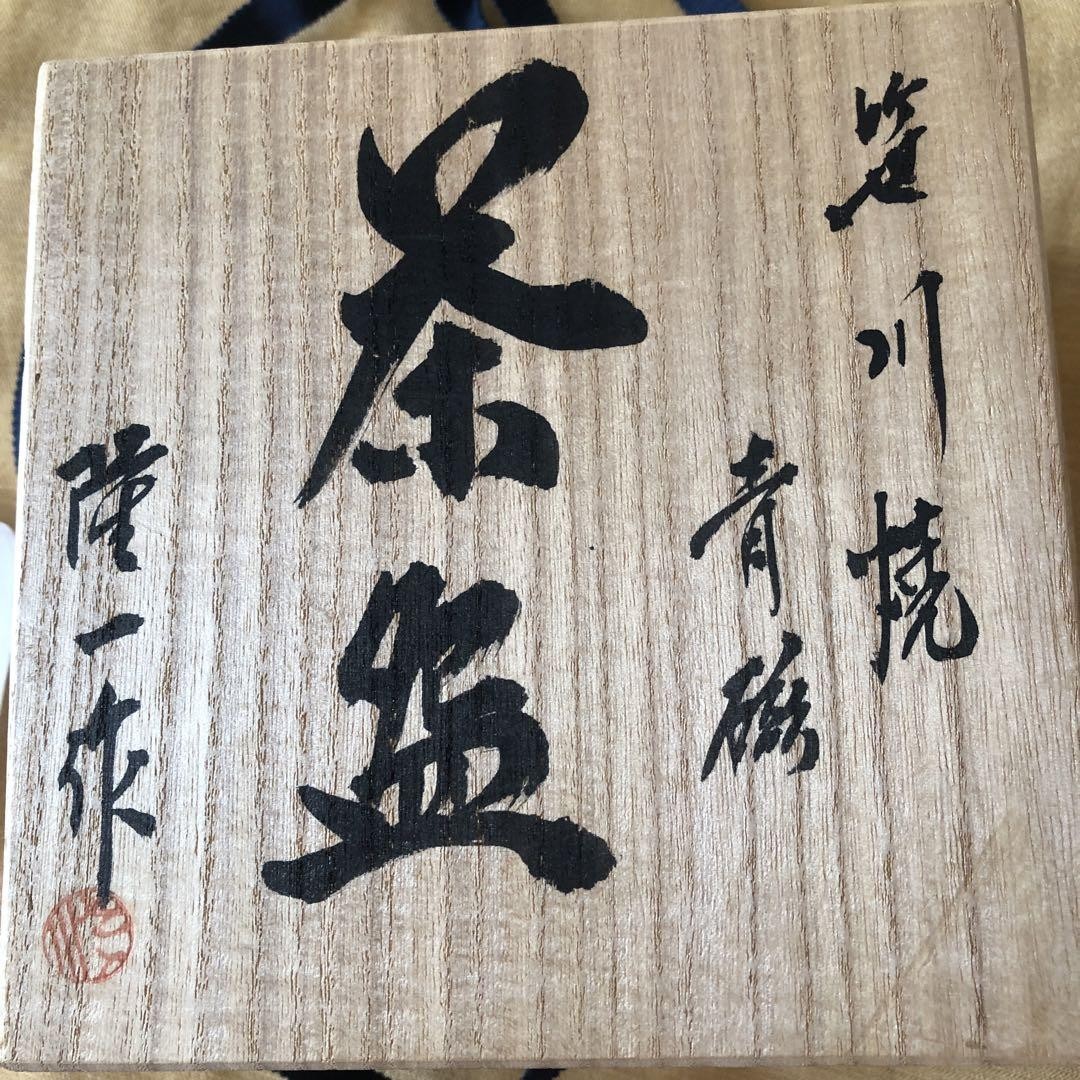 笹川焼
青磁
茶盌
隆一作